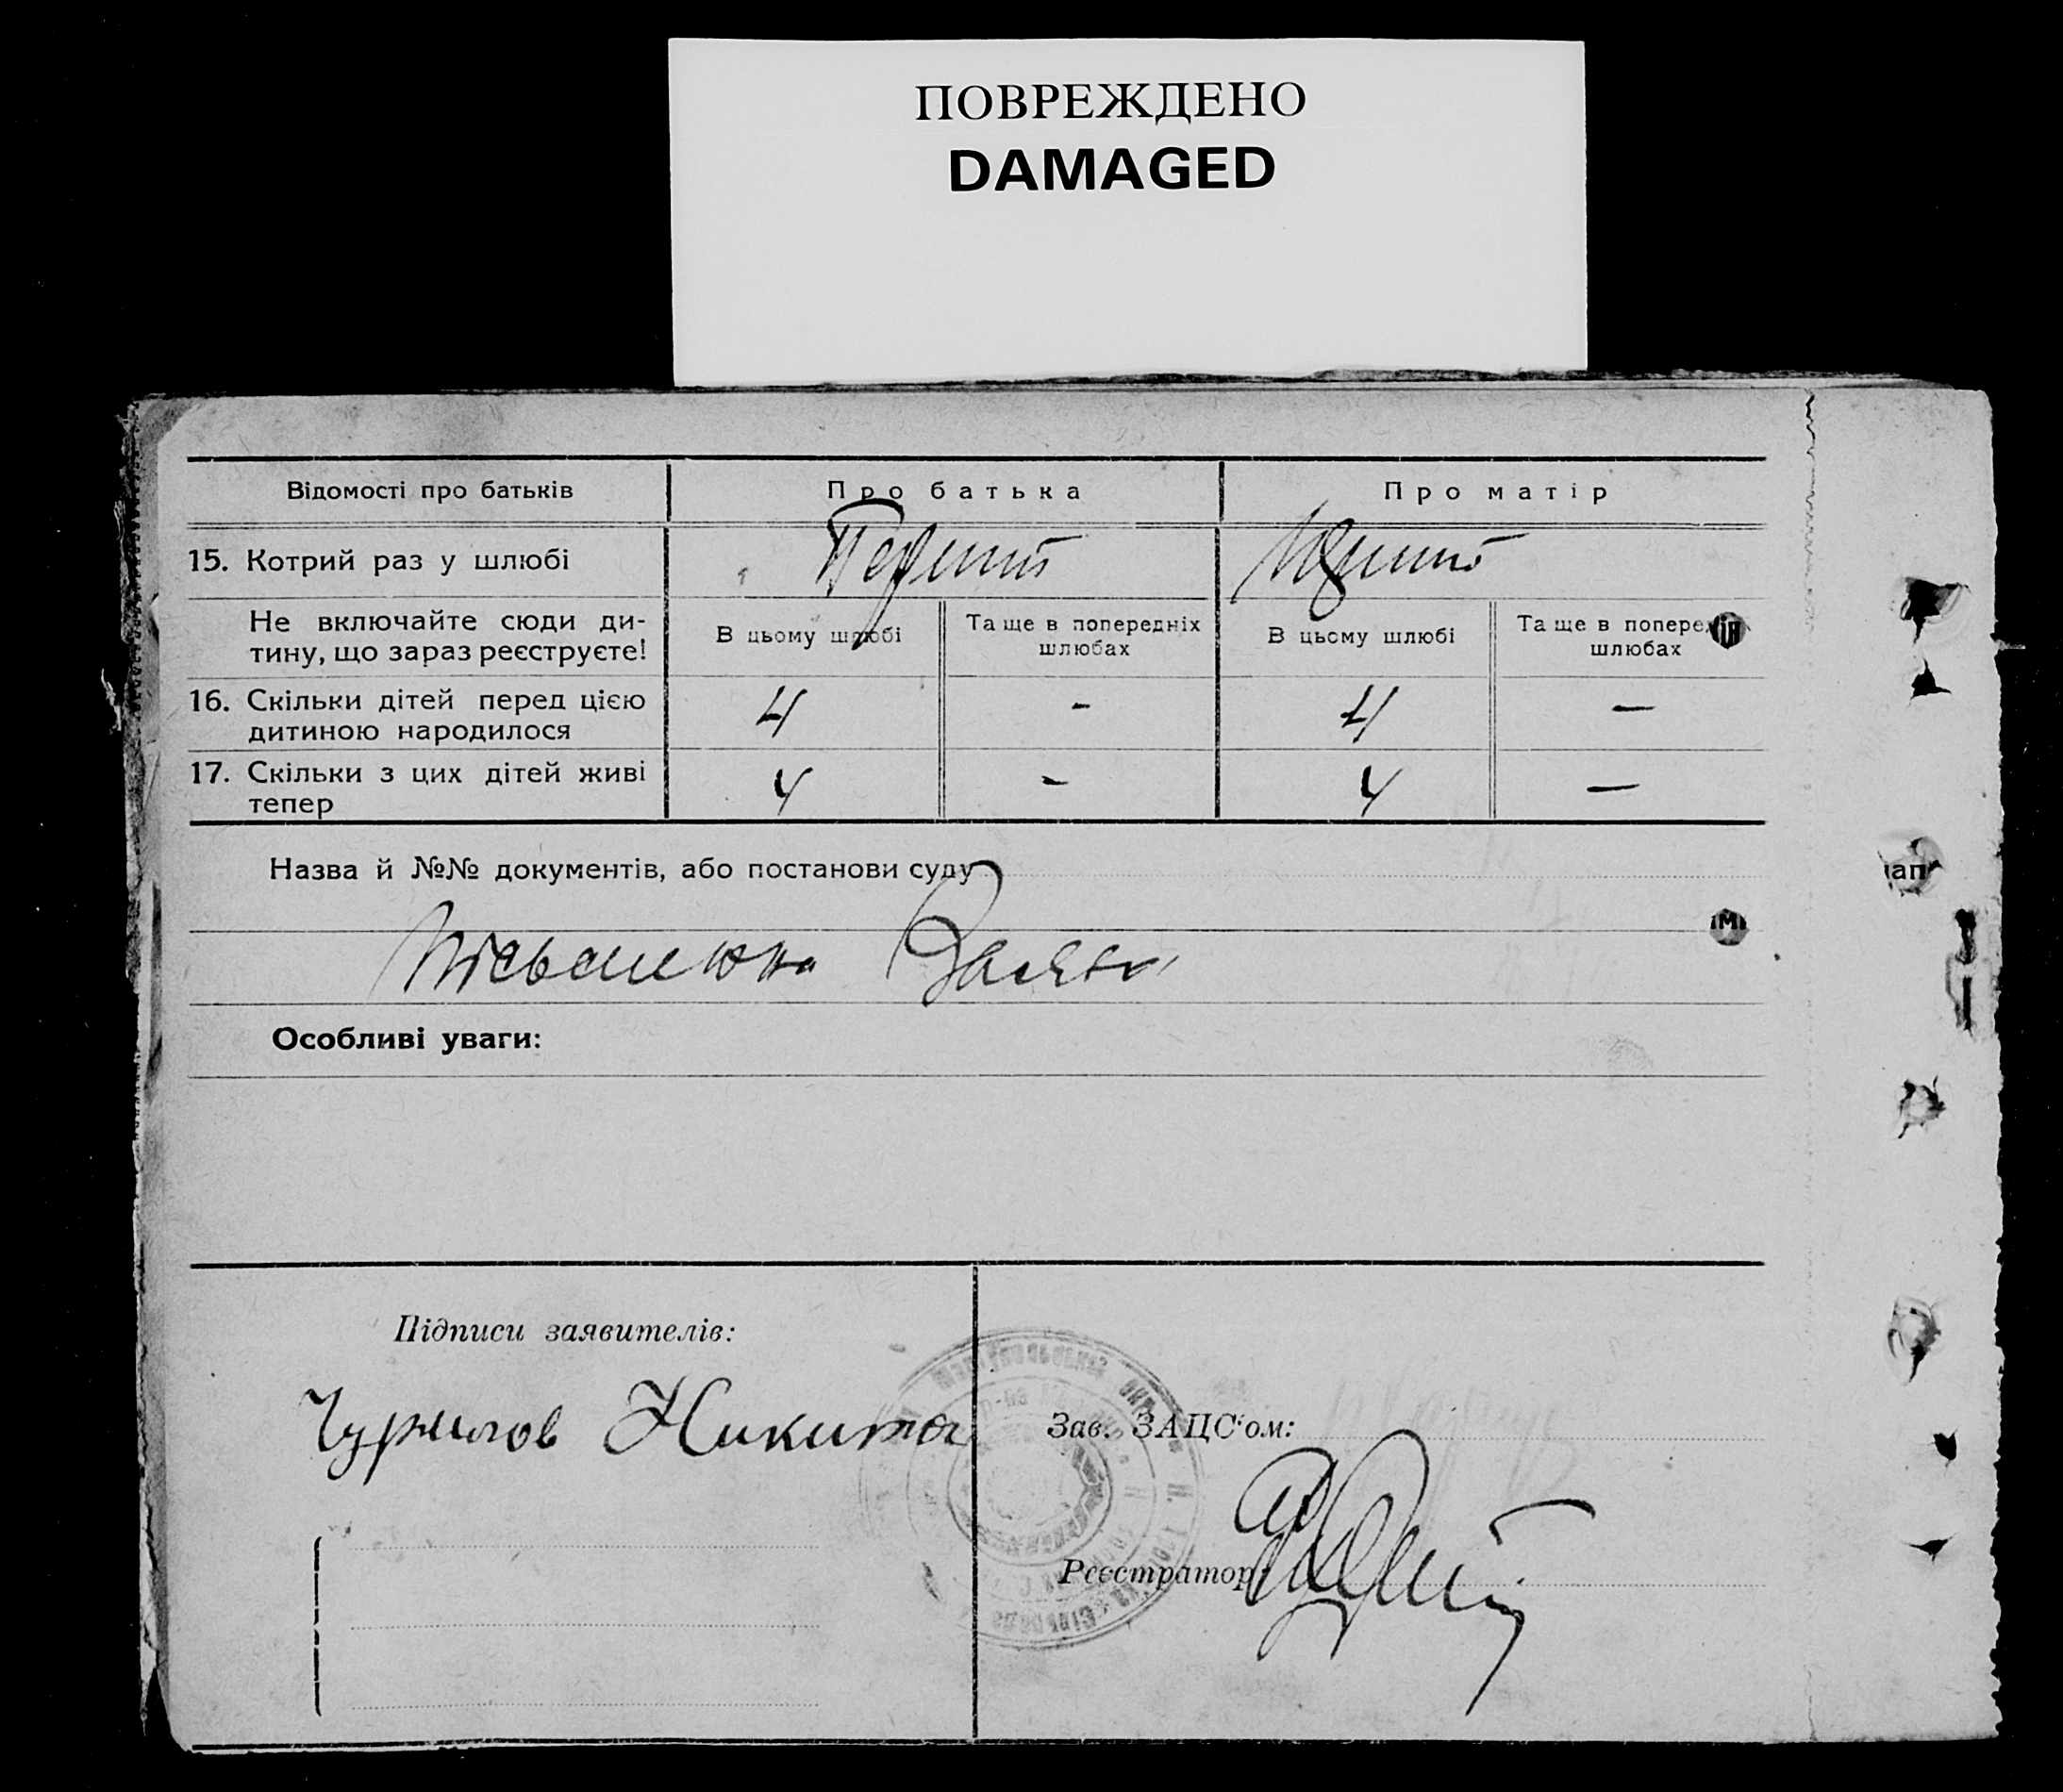 ПОВРЕЖДЕНО
DAMAGED
Відомості про батьків
Про батька
Про матір
15. Котрий раз у шлюбі
Перший
Перший
Не включайте сюди ди-
тину, що зараз реєструєте!
В цьому шлюбі
Та ще в попередніх
шлюбах
В цьому шлюбі
Та ще в попере
шлюбах
16. Скільки дітей перед цією
дитиною народилося
4
-
4
—
17. Скільки з цих дітей живі
тепер
4
-
4
—
Назва й №№ документів, або постанови суду
Особливі уваги:
Підписи заявителів:
Чурилов Никита
Зав. ЗАЦС'ом:
Реєстратор